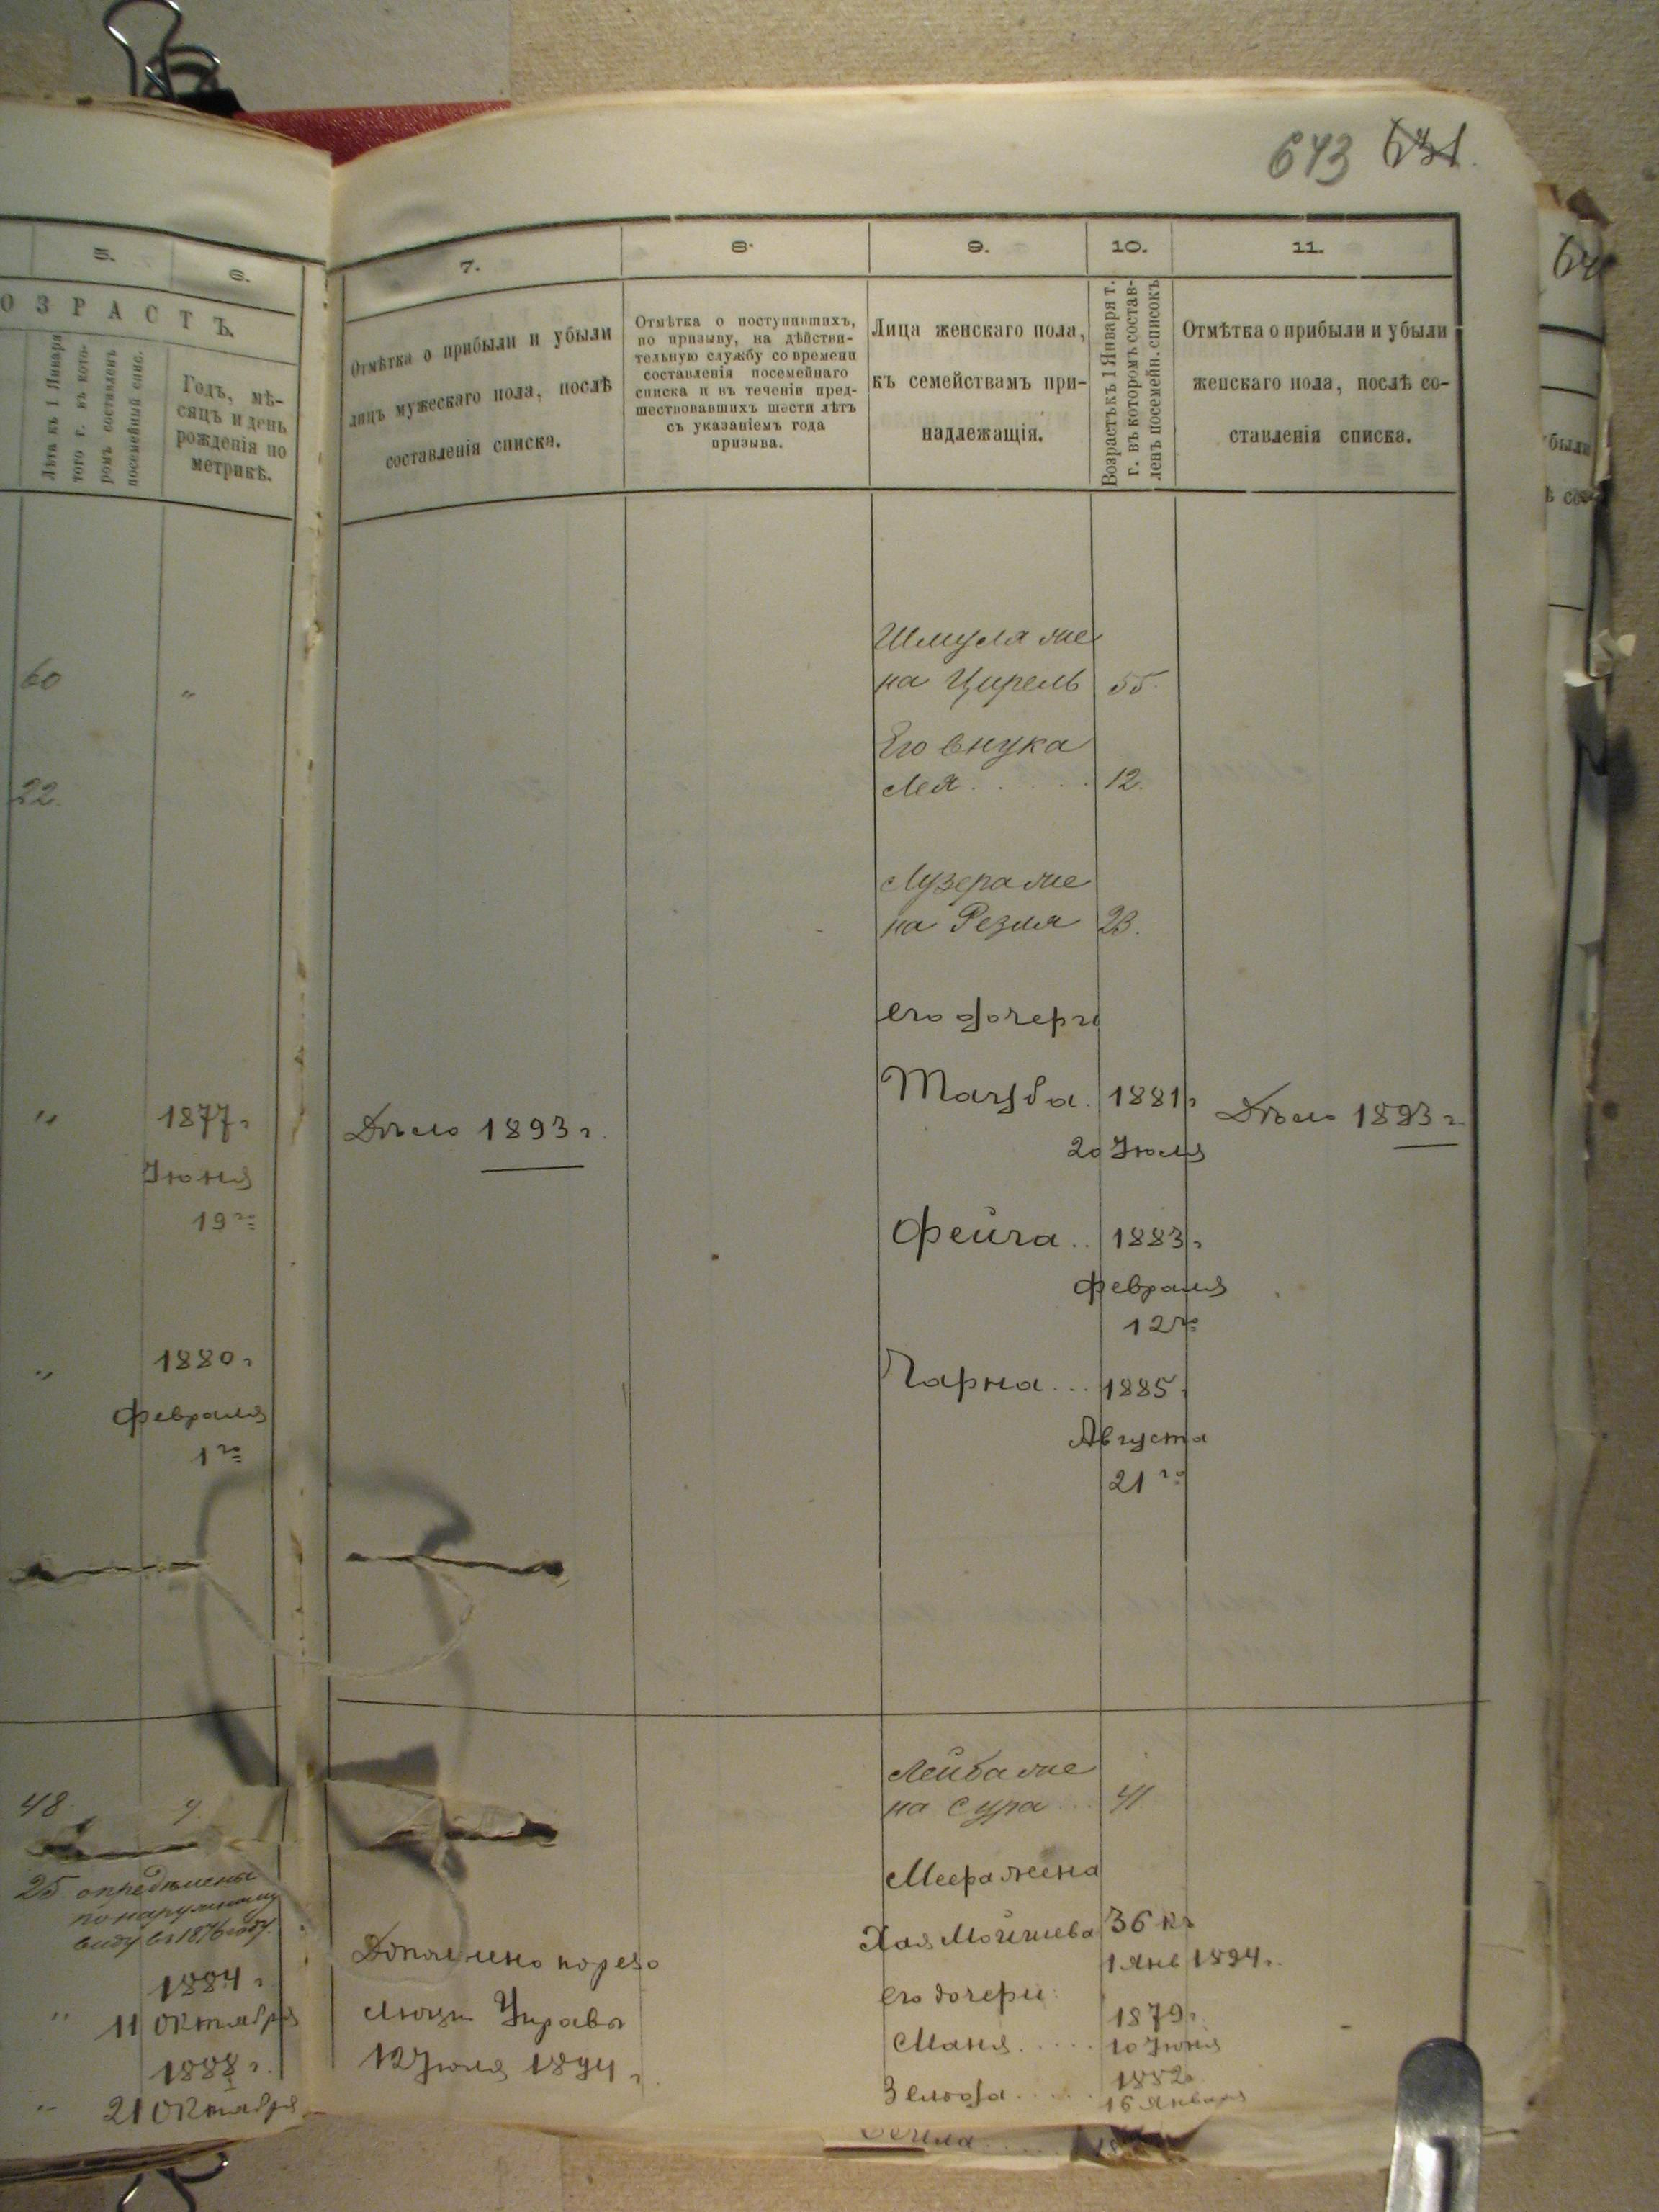 643 631
5.
6.
ОЗРАСТЪ.
Лѣта къ 1 Января
того г. въ кото-
ромъ составленъ
посемейный спис.
Годъ, мѣ-
сяцъ и день
рожденія по
метрикѣ.
60 "
22.
" 1877 г
Іюня
19 го
" 1880 г
Февраля
1 го
48
25. опредѣлены
по наружному
виду въ 1876 году.
1884 г
" 11 Октября
1888 г.
" 21 Октября
7.
8.
9.
10.
11.
Отмѣтка о прибыли и убыли
лицъ мужескаго пола, послѣ
составленія списка.
Отмѣтка о поступившихъ,
по призыву, на дѣйстви-
тельную службу со времени
составленія посемейнаго
списка и въ теченіи пред-
шествовавшихъ шести лѣтъ
съ указаніемъ года
призыва.
Лица женскаго пола,
къ семействамъ при-
надлежащія.
Возрастъ къ 1 Января т.
г. въ которомъ состав-
ленъ посемейн. списокъ
Отмѣтка о прибыли и убыли
женскаго пола, послѣ со-
ставленія списка.
Шмуля же
на Цирель 55.
Его внука
Лея 12.
Лузера же
на Резля 23.
его дочери
Тауба. 1881 г
20 Іюля
Дѣло 1893 г.
Дѣло 1893 г
Фейга.. 1883 г
Февраля
12 го
Чарна... 1885
Августа
21 го
Лейба же
на Сура... 41.
Меера жена
Хая Мойшева 36 к
1 Янв 1894 г.
его дочери:
Маня..... 1879 г.
10 Іюня
Зелода..... 1882
16 Января
Дополнено по резо
люціи Управы
12 Іюля 1894 г.